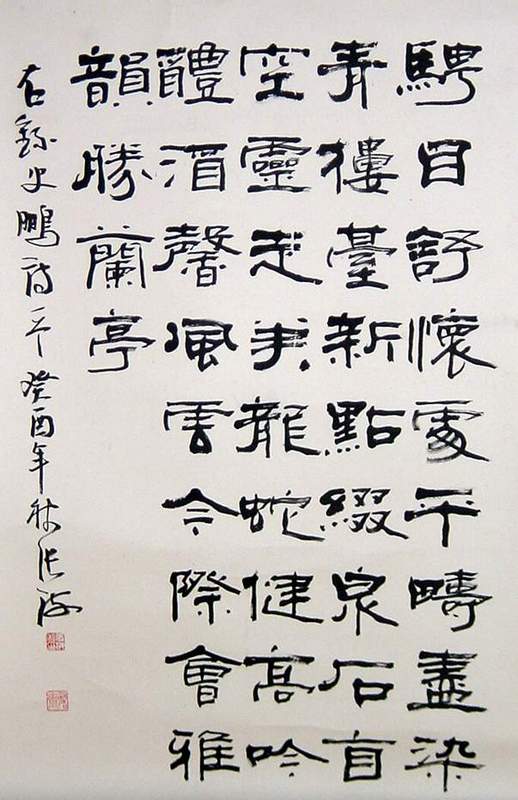 騁目舒懷處平疇盡染
青樓臺新點綴泉石有
空靈走筆龍蛇健高吟
醴酒馨風雲今際會雅
韻勝蘭亭
右錄史鵬詩一首 癸酉年秋張海